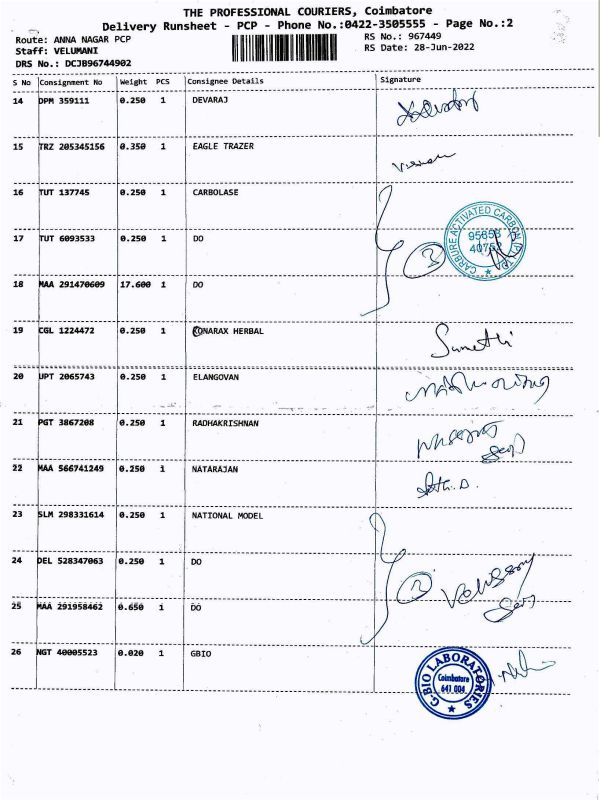 THE PROFESSIONAL COURIERS, Coimbatore
Delivery Runsheet - PCP - Phone No.:0422-3505555 - Page No.:2
Route: ANNA NAGAR PCP
Staff: VELUMANI
DRS No.: DCJB96744902
RS No.: 967449
RS Date: 28-Jun-2022
S No Consignment No Weight PCS Consignee Details Signature
14 DPM 359111 0.250 1 DEVARAJ
15 TRZ 205345156 0.350 1 EAGLE TRAZER
16 TUT 137745 0.250 1 CARBOLASE
17 TUT 6093533 0.250 1 DO
18 MAA 291470609 17.600 1 DO
3
CARBURE ACTIVATED CARBON (P) LTD
19 CGL 1224472 0.250 1 CONARAX HERBAL
Sumathi
20 UPT 2065743 0.250 1 ELANGOVAN
21 PGT 3867208 0.250 1 RADHAKRISHNAN
22 MAA 566741249 0.250 1 NATARAJAN
23 SLM 298331614 0.250 1 NATIONAL MODEL
24 DEL 528347063 0.250 1 DO
25 MAA 291958462 0.650 1 DO
26 NGT 40005523 0.020 1 GBIO
G-BIO LABORATORIES
Coimbatore
641 004